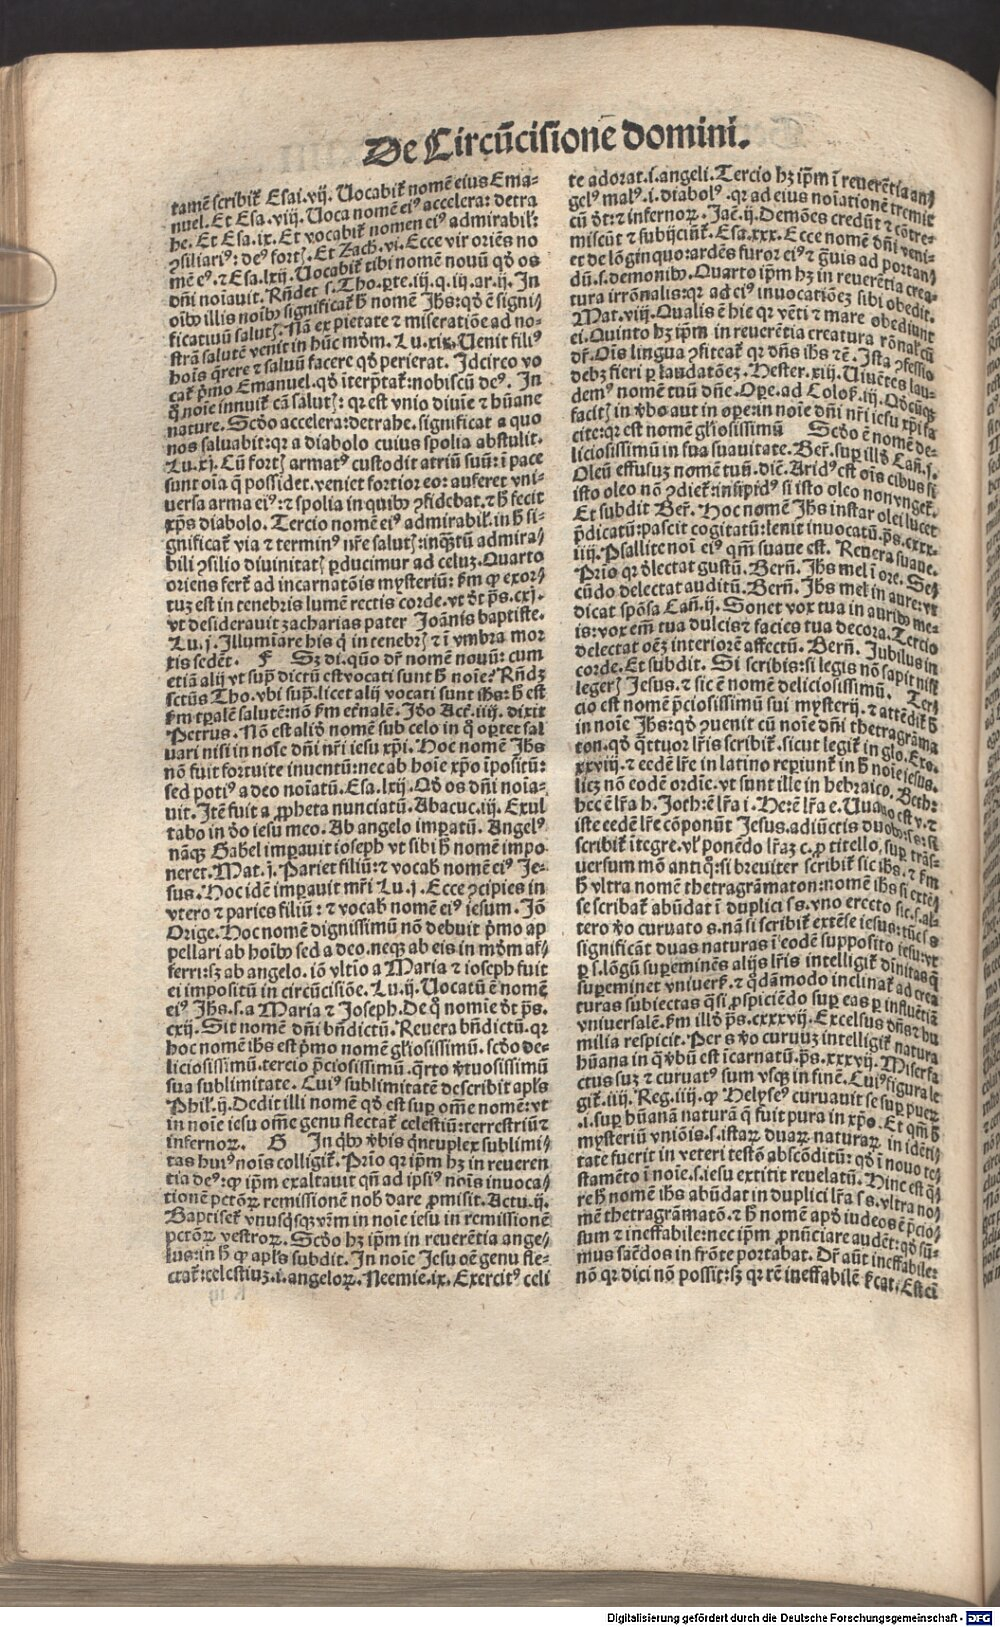 De Circũcisionē domini.
tamē scribit᷑ Esai.vij. Uocabit᷑ nomē eius Ema-
nuel. Et Esa.viij. Uoca nomē eiꝰ accelera: detra
he. Et Esa.ix. Et vocabit᷑ nomen eiꝰ admirabil᷑:
ꝯsiliariꝰ: deꝰ fortꝭ. Et Zach.vi. Ecce vir oriēs no
mē eꝰ. ⁊ Esa.lxij. Uocabit᷑ tibi nomē nouū qd̓ os
dñi noīauit. Rñdet s. Tho. ꝑte.iij.q.ij.ar.ij. In
oīb᷒ illis noīb᷒ significat᷑ h̄ nomē Jhs: qd̓ ē signi/
ficatiuū salutꝭ. Nā ex pietate ⁊ miseratiōe ad no-
strā salutē venit in hūc mūdm̄. Lu.xix. Uenit filiꝰ
hoīs q̄rere ⁊ saluū facere qd̓ perierat. Idcirco vo
cat᷑ pͥmo Emanuel. qd̓ īterp̄tat᷑: nobiscū deꝰ. In
q̊ noīe innuit᷑ cā salutꝭ: qr est vnio diuīe ⁊ hūane
nature. Scd̓o accelera: detrahe. significat a quo
nos saluabit: qr a diabolo cuius spolia abstulit.
Lu.xj. Cū fortꝭ armatꝰ custodit atriū suū: ī pace
sunt oīa q̄ possidet. veniet fortior eo: auferet vni-
uersa arma eiꝰ: ⁊ spolia in quib᷒ ꝯfidebat. ⁊ h̄ fecit
xp̄s diabolo. Tercio nomē eiꝰ admirabil᷑. in h̄ si-
gnificat᷑ via ⁊ terminꝰ nr̄e salutꝭ: inq̄ꝫtū admira/
bili ꝯsilio diuinitatꝭ ꝑducimur ad celuꝫ. Quarto
oriens fert᷑ ad incarnatōis mysteriū: ẜm ꝙ exor/
tuꝫ est in tenebris lumē rectis corde. vt d̄t ps̄.cxj.
vt desiderauit zacharias pater Joānis baptiste.
Lu.j. Illumīare his q̄ in tenebrꝭ ⁊ ī vmbra mor
tis sedēt. F Sꝫ di. quō dr̄ nomē nouū: cum
etiā alij vt sup̄ dictū est vocati sunt h̄ noīe? Rñdꝫ
sctūs Tho. vbi sup̄. licet alij vocati sunt ihs: h̄ est
ẜm tꝑalē salutē: nō ẜm et̓nalē. Iō Act᷑.iiij. dixit
Petrus. Nō est aliđ nomē sub celo in q̊ oꝑtet sal
uari nisi in noīe dñi nr̄i iesu xp̄i. Hoc nomē Jhs
nō fuit fortuite inuentū: nec ab hoīe xp̄o īpositū:
sed potiꝰ a deo noīatū. Esa.lxij. Qd̓ os dñi noīa-
uit. Jtē fuit a ꝓpheta nunciatū. Abacuc.iij. Exul
tabo in d̓o iesu meo. Ab angelo imꝑatū. Angelꝰ
nāqꝫ Gabel imꝑauit ioseph vt sibi h̄ nomē impo
neret. Mat.j. Pariet filiū: ⁊ vocab̄ nomē eiꝰ Je-
sus. Hoc idē imꝑauit mr̄i Lu.j. Ecce ꝯcipies in
vtero ⁊ paries filiū: ⁊ vocab̄ nomē eiꝰ iesum. Jō
Orige. Hoc nomē dignissimū nō debuit pͥmo ap
pellari ab hoīb᷒ sed a deo. neqꝫ ab eis in mūdm̄ af/
ferri: sꝫ ab angelo. iō vltīo a Maria ⁊ ioseph fuit
ei impositū in circūcisiōe. Lu.ij. Uocatū ē nomē
eiꝰ Jhs. s. a Maria ⁊ Joseph. De q̊ nomīe d̄t ps̄.
cxij. Sit nomē dñi bñdictū. Reuera bñdictū. qr
hoc nomē ihs est pͥmo nomē gl̓iosissimū. scd̓o de-
liciosissimū. tercio p̄ciosissimū. qͣrto v̓tuosissimū
sua sublimitate. Cuiꝰ sublimitatē describit apl̓s
Phil᷑.ij. Dedit illi nomē qd̓ est suꝑ om̄e nomē: vt
in noīe iesu om̄e genu flectat᷑ celestiū: terrestriū ⁊
infernoꝝ. G In qͥb᷒ v̓bis qͥntuplex sublimi/
tas huiꝰ noīs colligit᷑. Prīo qr ip̄m hꝫ in reueren
tia deꝰ: ꝙ ip̄m exaltauit qñ ad ip̄siꝰ noīs inuoca/
tionē pctōꝝ remissionē nob̄ dare ꝓmisit. Actu.ij.
Baptiset᷑ vnusq̄sqꝫ vr̄m in noīe iesu in remissionē
pctōꝝ vestroꝝ. Scd̓o hꝫ ip̄m in reuerētia ange/
lus: in h̄ ꝙ apl̓s subdit. In noīe Jesu oē genu fle-
ctat᷑: celestiuꝫ. i. angeloꝝ. Neemie.ix. Exercitꝰ celi
te adorat. i. angeli. Tercio hꝫ ip̄m ī reuerētia an/
gelꝰ malꝰ. i. diabolꝰ. qr ad eius noīationē tremit
cū d̄t: ⁊ infernoꝝ. Jac̄.ij. Demōes credūt ⁊ cōtre-
miscūt ⁊ subijciūt᷑. Esa.xxx. Ecce nomē dñi veni-
et de lōginquo: ardēs furor eiꝰ ⁊ g̓uis ad portan/
dū. s. demonib᷒. Quarto ip̄m hꝫ in reuerētia crea-
tura irrōnalis: qr ad eiꝰ inuocatiōeꝫ sibi obedit.
Mat.viij. Qualis ē hic qr vēti ⁊ mare obediunt
ei. Quinto hꝫ ip̄m in reuerētia creatura rōnal᷑: cū
dr̄. Oīs lingua ꝯfiteat᷑ qr dñs ihs ⁊c̄. Ista ꝯfessio
debꝫ fieri ꝑ laudatōeꝫ. Hester.xiij. Uiuētes lau-
dem̓ nomē tuū dñe. Oꝑe. ad Colos̄.iij. Qd̓cūqꝫ
facitꝭ in v̓bo aut in oꝑe: in noīe dñi nr̄i iesu xp̄i fa
cite: qr est nomē gl̓iosissimū Scd̓o ē nomē de-
liciosissimū in sua suauitate. Ber̄. suꝑ illd̓ Cañ.j.
Oleū effusuꝫ nomē tuū. diē. Aridꝰ est oīs cibus si
isto oleo nō ꝯdiet᷑: insipidꝰ si isto oleo non vnget᷑.
Et subdit Ber̄. Hoc nomē Jhs instar olei lucet
p̄dicatū: pascit cogitatū: lenit inuocatū. ps̄.cxxx-
iiij. Psallite noī eiꝰ qm̄ suaue est. Reuera suaue.
Prīo qr d̓lectat gustū. Berñ. Jhs mel ī ore. Se/
cūdo delectat auditū. Berñ. Jhs mel in aure: vt
dicat spōsa Cañ.ij. Sonet vox tua in aurib᷒ me-
is: vox em̄ tua dulcis ⁊ facies tua decora. Tercio
delectat oēꝫ interiorē affectū. Berñ. Jubilus in
corde. Et subdit. Si scribis: si legis nō sapit nisi
legerꝭ Jesus. ⁊ sic ē nomē deliciosissimū. Ter/
cio est nomē p̄ciosissimū sui mysterij. ⁊ attēdit᷑ h̄
in noīe Jhs: qd̓ ꝯuenit cū noīe dñi thetragrāma
ton. qd̓ q̄ttuor lr̄is scribit᷑. sicut legit᷑ in glo. Exo.
xxviij. ⁊ eedē lr̄e in latino reꝑiunt᷑ in h̄ noīe iesus.
licꝫ nō eodē ordīe. vt sunt ille in hebraico. Beth:
hec ē lr̄a h. Joth: ē lr̄a i. He: ē lr̄a e. Uau: o est v. ⁊
iste eedē lr̄e cōponūt Jesus. adiūctis duob᷒: ss: si
scribit᷑ ītegre. vl̓ ponēdo lr̄aꝫ c. ꝓ titello. suꝑ trās-
uersum mō antiq̊: si breuiter scribit᷑ sic ihs. ⁊ ẜm
h̄ vltra nomē thetragrāmaton: nomē ihs si extē/
se scribat᷑ abūdat ī duplici ss. vno erecto sic. s. al-
tero v̓o curuato s. nā si scribit᷑ extēse iesus: tūc ſ s
significāt duas naturas ī eodē supposito iesu: vt
ꝑ s. lōgū suꝑeminēs alijs lr̄is intelligit᷑ dīnitas q̄
suꝑeminet vniuerẜ. ⁊ q̄dāmodo inclinat᷑ ad crea
turas subiectas q̄si ꝓspiciēdo suꝑ eas ꝑ influētiā
vniuersalē. ẜm illd̓ ps̄.cxxxvij. Excelsus dñs ⁊ hu
milia respicit. Per s v̓o curuuꝫ intelligit᷑ natura
hūana in q̊ v̓bū est īcarnatū. ps̄.xxxvij. Miser fa
ctus suꝫ ⁊ curuatꝰ sum vsqꝫ in finē. Cuiꝰ figura le
git᷑.iiij. Reg.iiij. ꝙ Helyseꝰ curuauit se suꝑ pueꝝ
.i. suꝑ hūanā naturā q̄ fuit pura in xp̄o. Et qm̄ h̄
mysteriū vniōis. s. istaꝝ duaꝝ naturaꝝ in idēti/
tate fuerit in veteri testō abscōditū: qd̓ ī nouo te-
stamēto ī noīe. s. iesu extitit reuelatū. Hinc est q̄/
re h̄ nomē ihs abūdat in duplici lr̄a ss. vltra no/
mē thetragrāmatō. ⁊ h̄ nomē apd̓ iudeos ē p̄cio/
sum ⁊ ineffabile: nec ip̄m ꝓnūciare audēt: qd̓ sū-
mus sacēdos in frōte portabat. Dr̄ aūt ineffabile:
nō qr dici nō possit: sꝫ qr rē ineffabilē s̄cat. Est eī
Digitalisierung gefördert durch die Deutsche Forschungsgemeinschaft - DFG